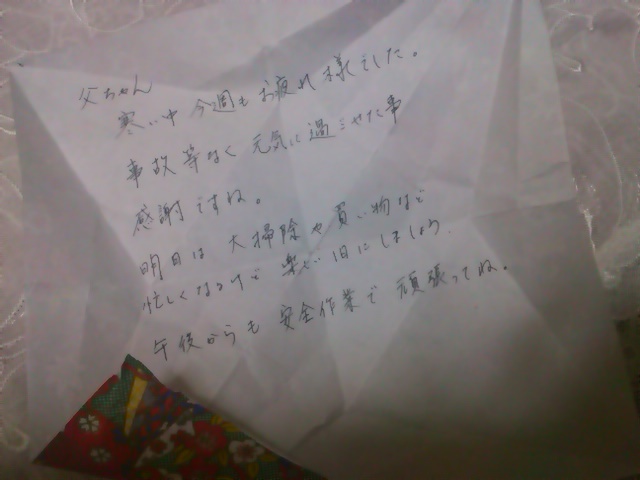 父ちゃん
寒い中 今週もお疲れ様でした。
事故等なく 元気に過ごせた事
感謝ですね。
明日は 大掃除や買い物など
忙しくなるけど 楽しい1日にしましょう。
午後からも 安全作業で 頑張ってね。